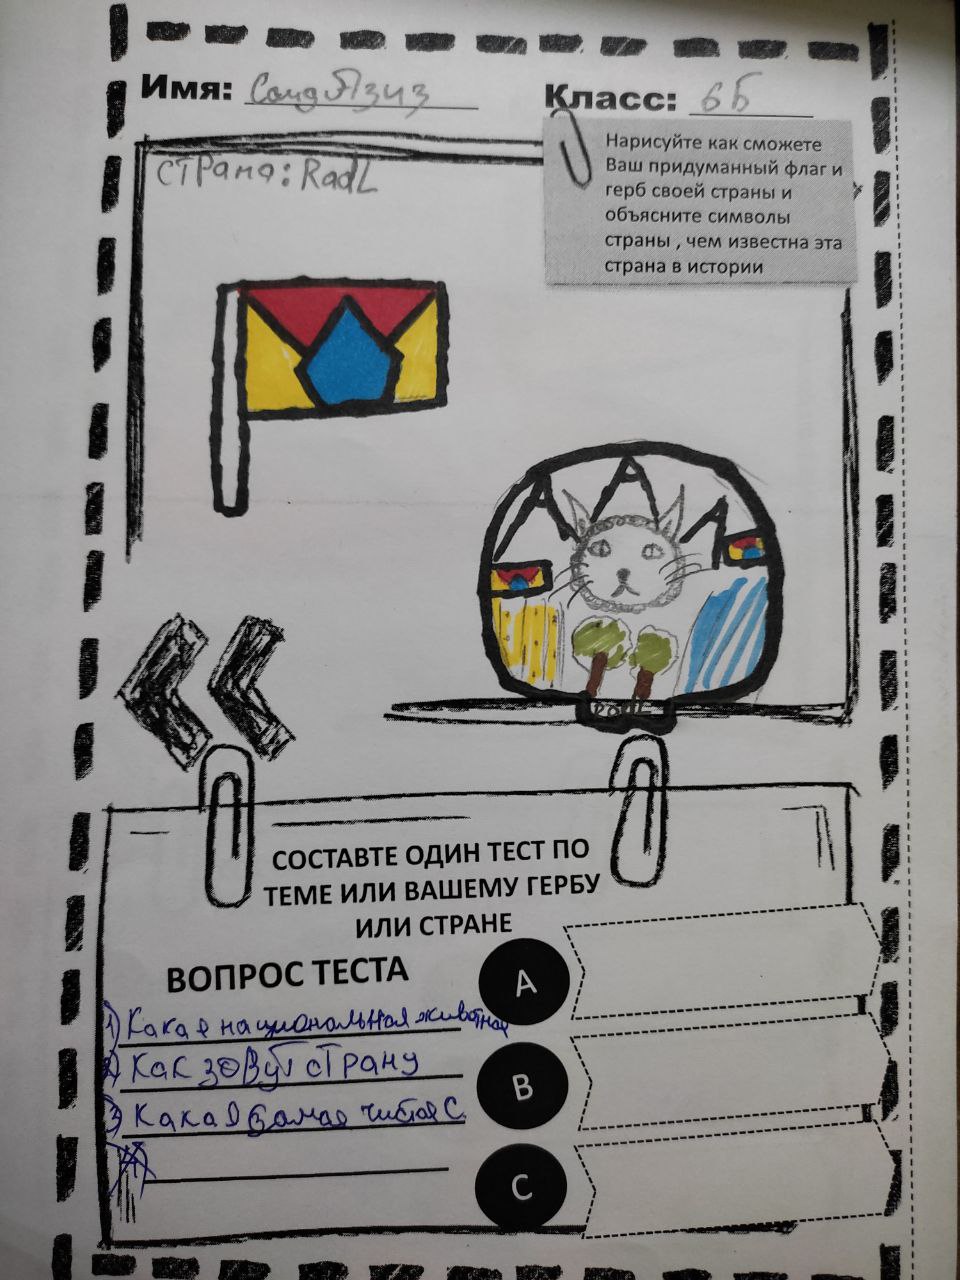 Имя: Саид Азиз
Класс: 6Б
Нарисуйте как сможете
Ваш придуманный флаг и
герб своей страны и
объясните символы
страны , чем известна эта
страна в истории
страна: RadL
СОСТАВТЕ ОДИН ТЕСТ ПО
ТЕМЕ ИЛИ ВАШЕМУ ГЕРБУ
ИЛИ СТРАНЕ
ВОПРОС ТЕСТА
1) Какая национальная животная
2) Как зовут страну
3) Какая самая чистая С.
A
B
C